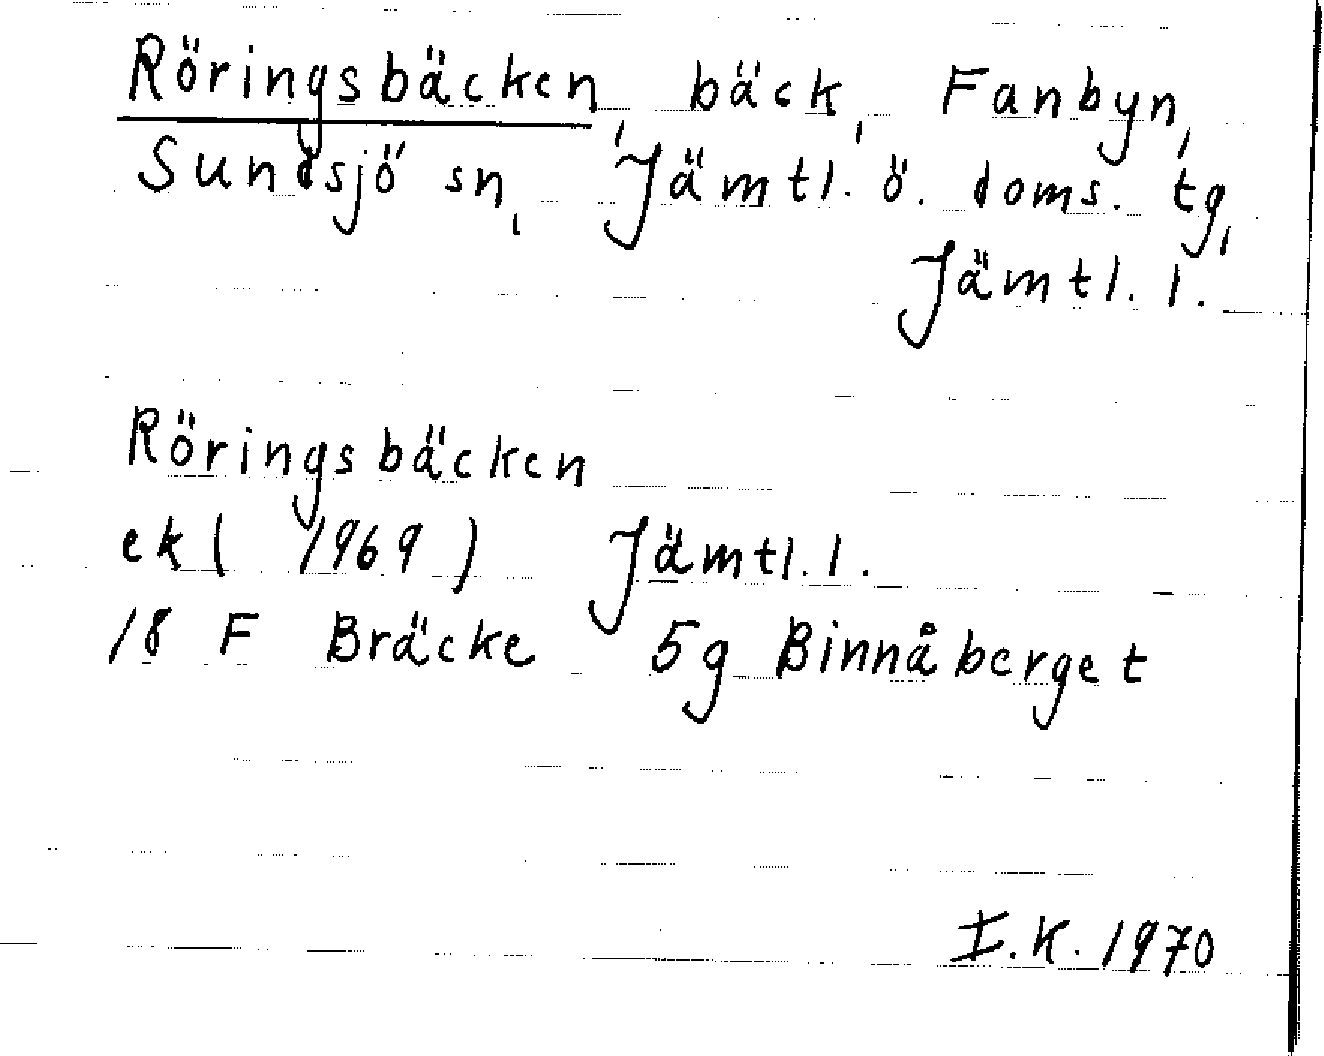 Röringsbäcken, bäck, Fanbyn,
Sundsjö sn, Jämtl. ö. doms. tg,
Jämtl. l.
Röringsbäcken
ek ( 1969 ) Jämtl. l.
18 F Bräcke 5g Binnåberget
I.K. 1970